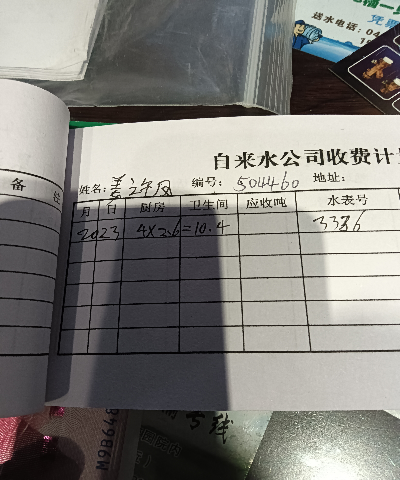 送水电话:04
自来水公司收费计
备
姓名:姜许凤 编号:504460 地址:
月 日 厨房 卫生间 应收吨 水表号
2023 4×2.6=10.4 3386
M9B648